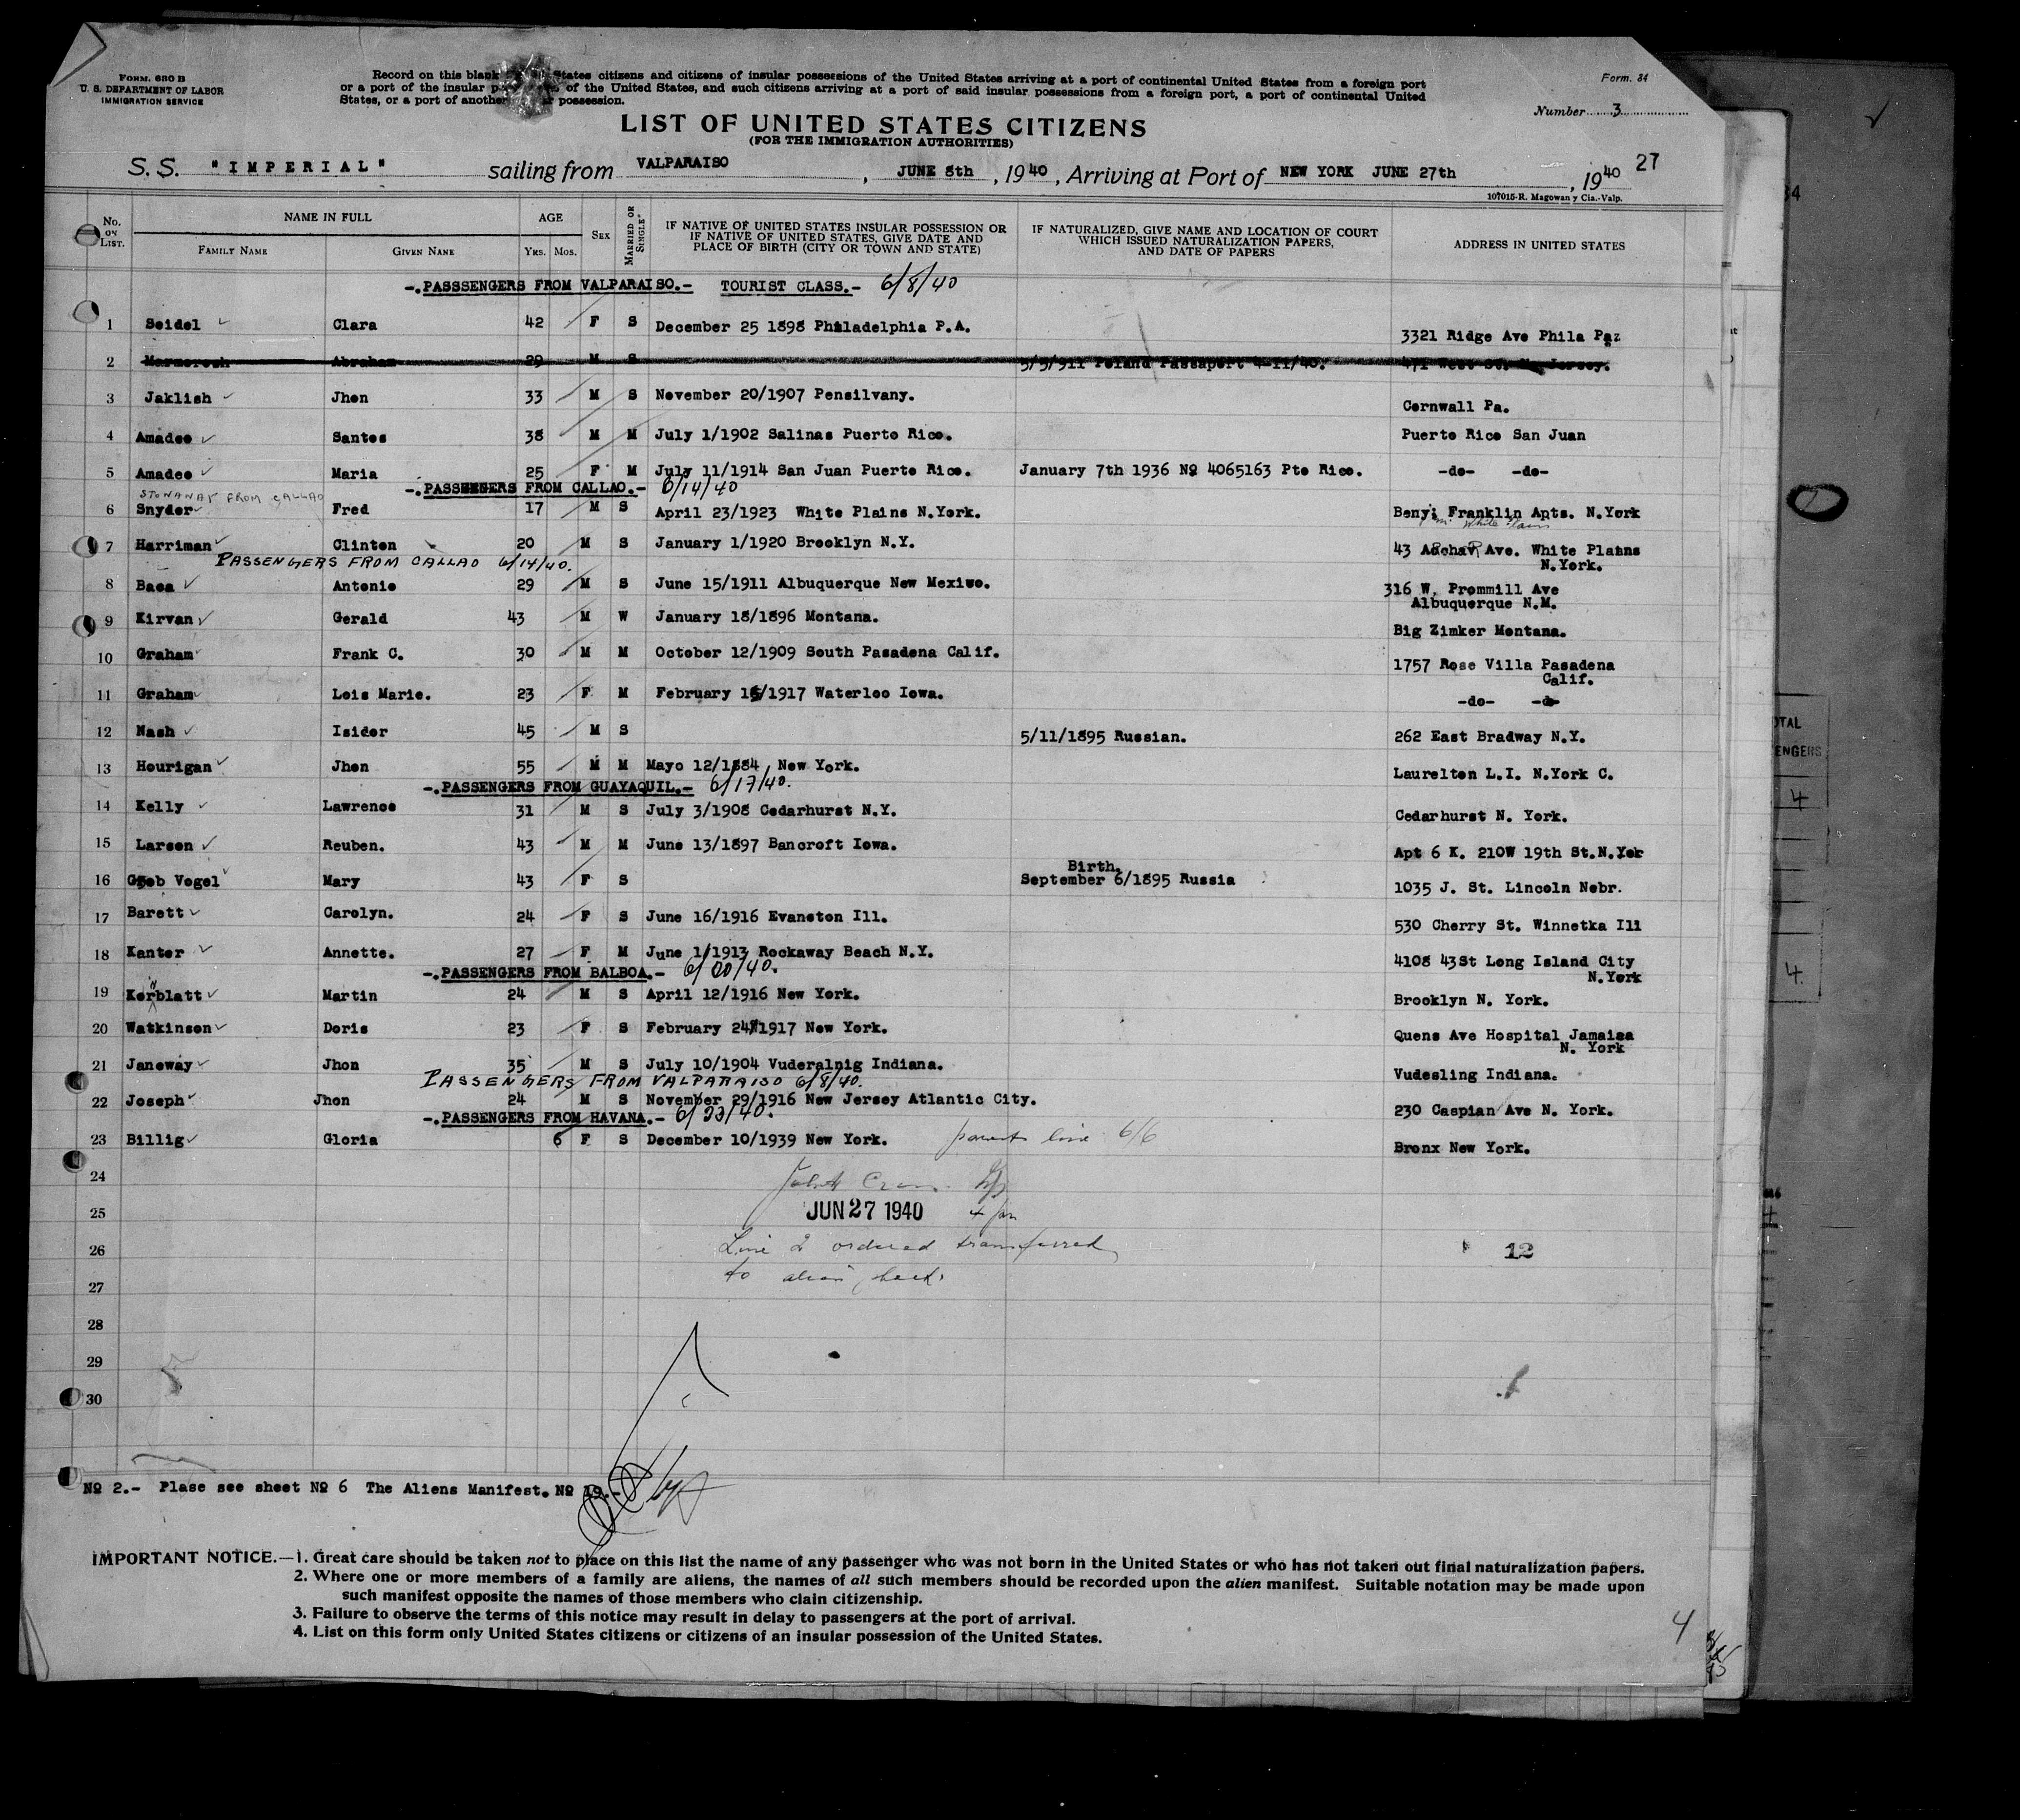 FORM. 630 B
U. S. DEPARTMENT OF LABOR
IMMIGRATION SERVICE
Form. 34
Number 3
Record on this blank States citizens and citizens of insular possessions of the United States arriving at a port of continental United States from a foreign port
or a port of the insular of the United States, and such citizens arriving at a port of said insular possessions from a foreign port, a port of continental United
States, or a port of another possession.
LIST OF UNITED STATES CITIZENS
(FOR THE IMMIGRATION AUTHORITIES)
S.S. "IMPERIAL" sailing from VALPARAISO, JUNE 8th, 1940, Arriving at Port of NEW YORK JUNE 27th, 1940 27
107015-R. Magowan y Cia.-Valp.
No. ON LIST. NAME IN FULL FAMILY NAME GIVEN NAME AGE YRS. MOS. SEX MARRIED OR SINGLE* IF NATIVE OF UNITED STATES INSULAR POSSESSION OR IF NATIVE OF UNITED STATES, GIVE DATE AND PLACE OF BIRTH (CITY OR TOWN AND STATE) IF NATURALIZED, GIVE NAME AND LOCATION OF COURT WHICH ISSUED NATURALIZATION PAPERS, AND DATE OF PAPERS ADDRESS IN UNITED STATES
-.PASSSENGERS FROM VALPARAISO.- TOURIST CLASS.- 6/8/40
1 Seidel Clara 42 F S December 25 1898 Philadelphia P.A. 3321 Ridge Ave Phila Paz
2 Abraham 29 M S 5/5/911 Poland Passaport 4-11/40. 471 West St. Jersey.
3 Jaklish Jhon 33 M S November 20/1907 Pensilvany. Cornwall Pa.
4 Amadeo Santos 38 M M July 1/1902 Salinas Puerto Rico. Puerto Rico San Juan
5 Amadeo Maria 25 F M July 11/1914 San Juan Puerto Rico. January 7th 1936 Nº 4065163 Pto Rico. -do- -do-
-.PASSENGERS FROM CALLAO.- 6/14/40
STOWAWAY FROM CALLAO
6 Snyder Fred 17 M S April 23/1923 White Plains N.York. Benyi Franklin Apts. N.York
White Plains
7 Harriman Clinton 20 M S January 1/1920 Brooklyn N.Y. 43 Ave. White Plains
N.York.
PASSENGERS FROM CALLAO 6/14/40.
8 Baca Antonio 29 M S June 15/1911 Albuquerque New Mexico. 316 W. Prommill Ave
Albuquerque N.M.
9 Kirvan Gerald 43 M W January 18/1896 Montana. Big Zimker Montana.
10 Graham Frank C. 30 M M October 12/1909 South Pasadena Calif. 1757 Rose Villa Pasadena
Calif.
11 Graham Lois Marie. 23 F M February 15/1917 Waterloo Iowa. -do- -do-
12 Nash Isidor 45 M S 5/11/1895 Russian. 262 East Bradway N.Y.
13 Hourigan Jhon 55 M M Mayo 12/1884 New York. Laurelton L.I. N.York C.
-.PASSENGERS FROM GUAYAQUIL.- 6/17/40.
14 Kelly Lawrence 31 M S July 3/1908 Cedarhurst N.Y. Cedarhurst N. York.
15 Larson Reuben. 43 M M June 13/1897 Bancroft Iowa. Apt 6 K. 210W 19th St.N.Yor
Birth.
16 Vogel Mary 43 F S September 6/1895 Russia 1035 J. St. Lincoln Nebr.
17 Barett Carolyn. 24 F S June 16/1916 Evanston Ill. 530 Cherry St. Winnetka Ill
18 Kanter Annette. 27 F M June 1/1913 Rockaway Beach N.Y. 4108 43St Long Island City
N.York
-.PASSENGERS FROM BALBOA.- 6/20/40.
19 Kornblatt Martin 24 M S April 12/1916 New York. Brooklyn N. York.
20 Watkinson Doris 23 F S February 24/1917 New York. Quens Ave Hospital Jamaica
N. York
21 Janeway Jhon 35 M S July 10/1904 Vuderalnig Indiana. Vudesling Indiana.
PASSENGERS FROM VALPARAISO 6/8/40.
22 Joseph Jhon 24 M S November 29/1916 New Jersey Atlantic City. 230 Caspian Ave N. York.
-.PASSENGERS FROM HAVANA.- 6/23/40.
23 Billig Gloria 6 F S December 10/1939 New York. parents line 6/6 Bronx New York.
24
25 JUN 27 1940
26 Line 2 ordered transferred 12
27 to alien sheet.
28
29
30
Nº 2.- Plase see sheet Nº 6 The Aliens Manifest. Nº 19.-
IMPORTANT NOTICE.—1. Great care should be taken not to place on this list the name of any passenger who was not born in the United States or who has not taken out final naturalization papers.
2. Where one or more members of a family are aliens, the names of all such members should be recorded upon the alien manifest. Suitable notation may be made upon
such manifest opposite the names of those members who claim citizenship.
3. Failure to observe the terms of this notice may result in delay to passengers at the port of arrival.
4. List on this form only United States citizens or citizens of an insular possession of the United States.
4